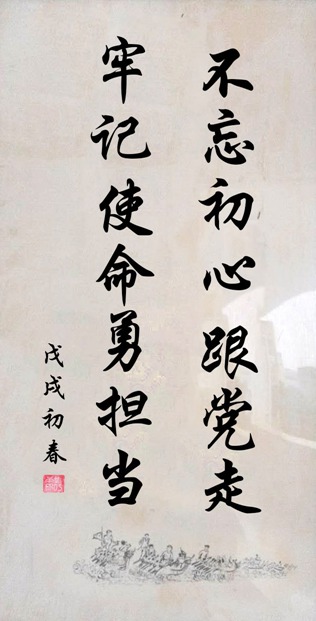 不忘初心跟党走
牢记使命勇担当
戊戌初春